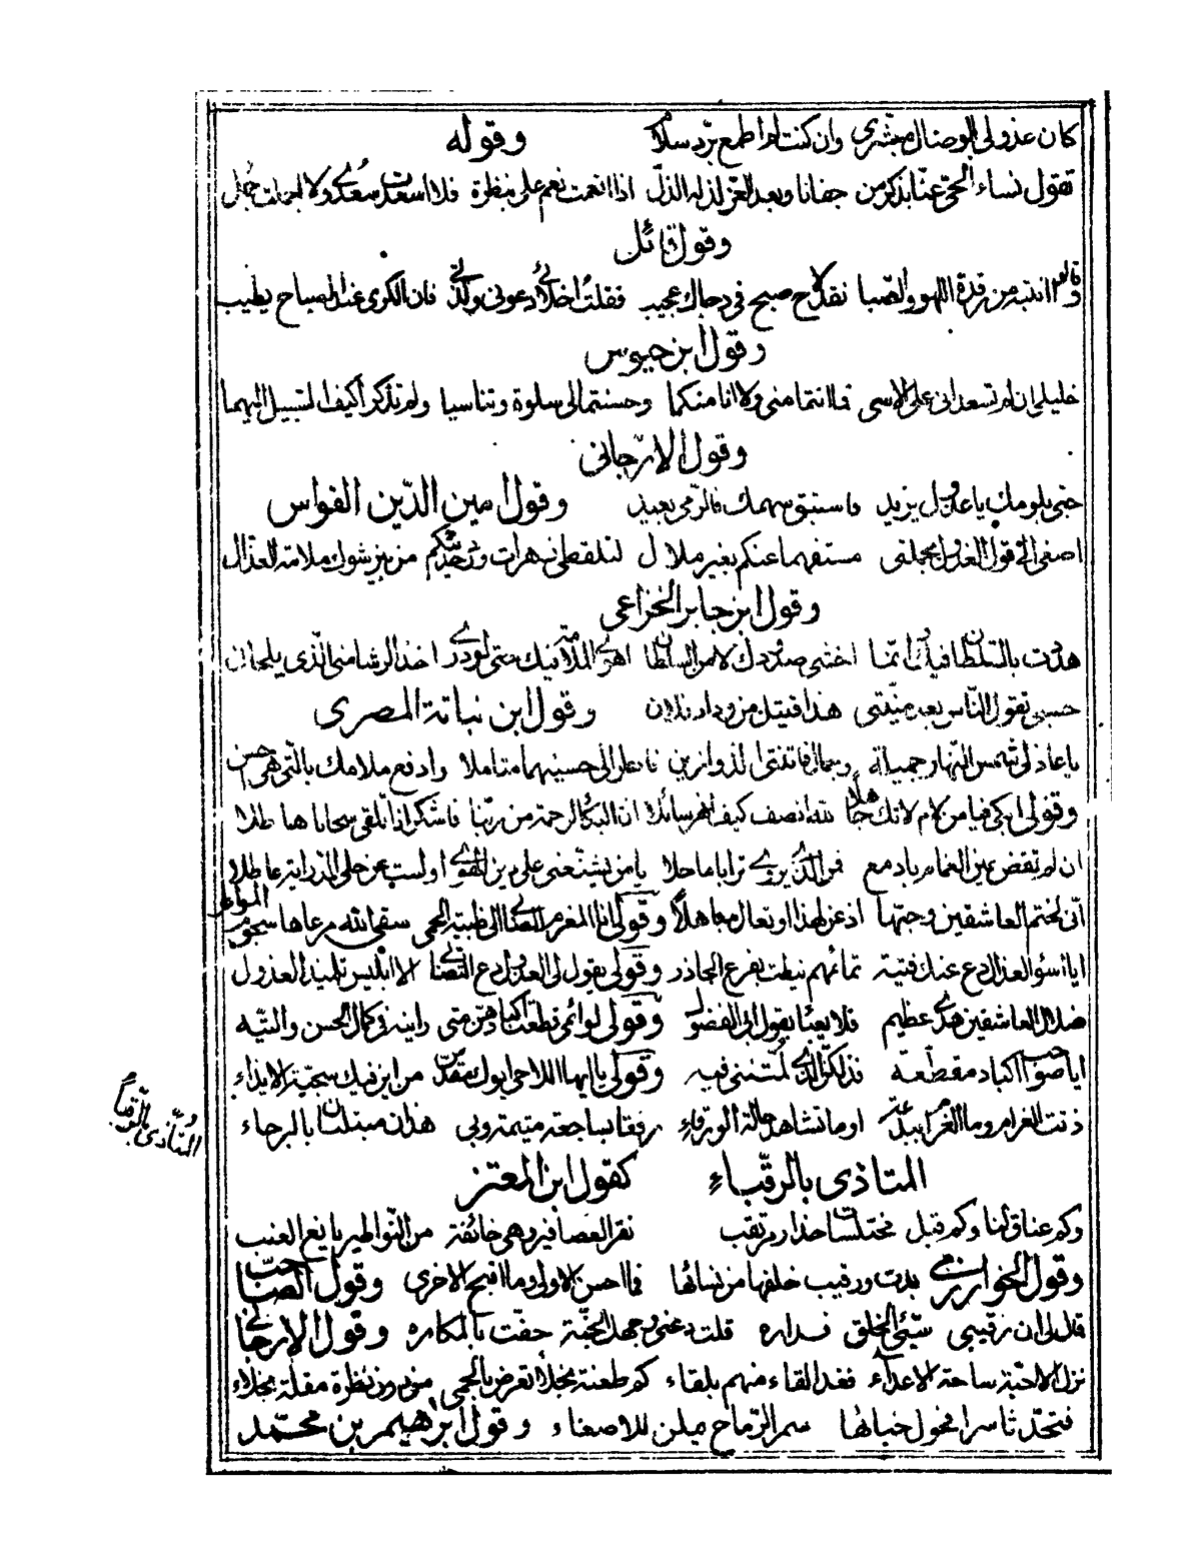 كان عذولى بالوصال مبشرى وان كنت لم اطمع برد سلام وقوله
تقول نساء الحى عنا بذكر من جفانا وبعد العز لذ له الذل اذا انعمت نعم على بنظرة فلا اسعدت سعدى ولا اجملت جمل
وقول قائل
وقالوا انتبه من رقدة اللهو والصبا فقد لاح صبح فى دجاك عجيب فقلت اخلائى دعونى ولذتى فان الكرى عند الصباح يطيب
وقول ابن حيوس
خليلى ان لم تسعدانى على الاسى فلا انتما منى ولا انا منكما وحسنتما لى سلوة وتناسيا ولم تذكرا كيف السبيل اليهما
وقول الارّجانى
حبى بلومك يا عذول يزيد فاستبق سهمك فالرمى بعيد وقول امين الدّين القواس
اصغى الى قول العذول بجملتى مستفهما عنكم بغير ملال لتلقطى زهرات ورد حديثكم من بين شوك ملامة العذال
وقول ابن جابر الخزاعى
هددت بالسلطان فيك وانما اخشى صدودك لا من السلطان اهوى الملامة فيك حتى لو درى اخذ الرشا منى الذى يلحانى
حسبى بقول النّاس بعد منيّتى هذا قتيل من وداد فلان وقول ابن نباتة المصرى
يا عاذلى شمس النهار جميلة وجمال فاتنتى الذ وازين فانظر الى حسنيهما متاملا وادفع ملامك بالتى هى احسن
وقولى ابكى فيا من لام لا تك جاهلا لله انصف كيف انهر سائلا ان البكا لرحمة من ربّنا فاشكر اذا تلقى سحابا هاطلا
ان لم تفض عين الغمام بادمع فمن الذى يروى ترابا ماحلا يا من يشنّعنى على دين الهوى اولست عن حلى الدراية عاطلا
انى لختم العاشقين وجتهم اذعن لهذا او تعال مباهلا وقولى انا المغرم الصّابى الى ظبية الحمى سقى الله مرعاها سجوم المواطر
ايا اسؤ العذال دع عنك فتية تمائمهم نيطت بفرع الجاذر وقولى يقول لى العذول دع التصابى الا ابليس تلميذ العذول
ضلال العاشقين هدى عظيم فلا يعبا بقول ابى الفضول وقولى لوائمى قطعت اكبادهن متى راينه فى كمال الحسن والتيه
ايا صواحب اكباد مقطّعة فذلكن الذى لمتننى فيه وقولى يا ايها اللاحى ابوك مقدّس من اين فيك سجية الايذاء
ذقت الغرام وما الغرام ببدعة اوما تشاهد حالة الورقاء رفقا بساجعة متيمة وبى هذان مبتليان بالبرحاء
المتاذى بالرقّباء كقول ابن المعتز
وكم عناق لنا وكم قبل مختلسات حذار مرتقب نقر العصافير وهى خائفة من النّواطير يانع العنب
وقول الخوارزمى بدت ورقيب خلفها من نسائها فما احسن الاولى وما اقبح الاخرى وقول الصّاحب
قال لى ان رقيبى سيّئى الخلق فداره قلت دعنى وجهك الجنّة حفت بالمكاره وقول الارجانى
نزل الاحبّة ساحة الاعداء فغدا لقاء منهم بلقاء كم طعنة نجلاء تعرض بالحمى من دون نظرة مقلة نجلاء
فتحدّثا سرا فحول خبائها سمر الرّماح يملن للاصغاء وقول ابراهيم بن محمّد
المتاذى بالرّقباء